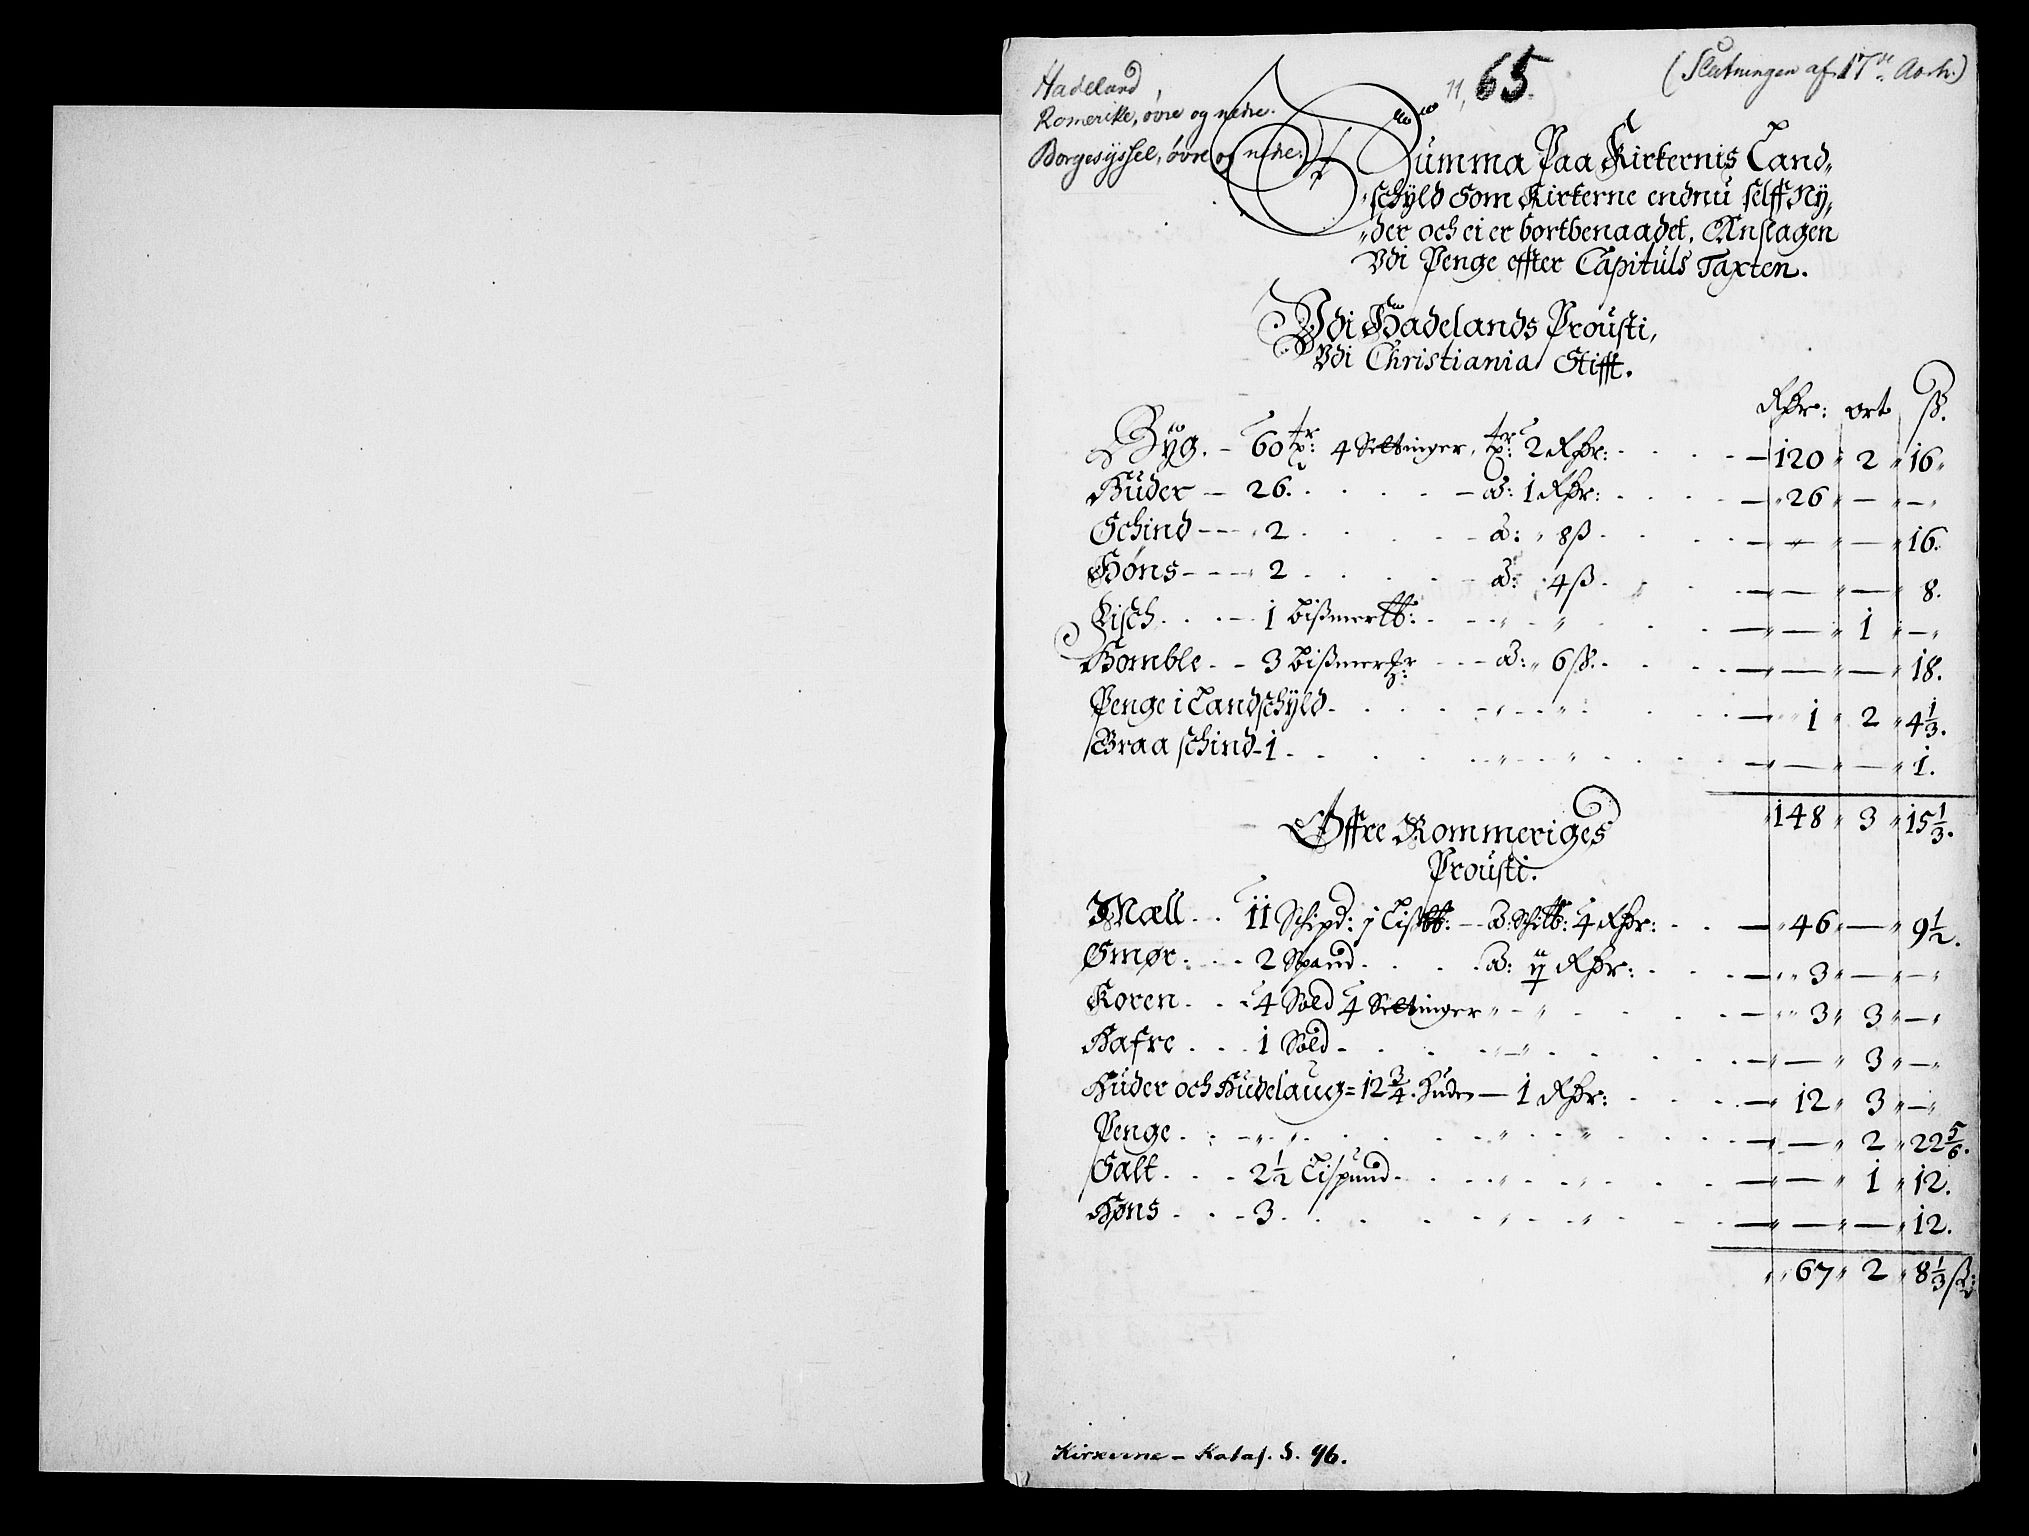 Hadeland,
Romerike, øvre og nedre.
Borgesyssel, øvre og nedre.
11, 65.
(Slutningen af 17de Aarh.)
Summa Paa Kirkernis Land„
„schÿld Som Kirkerne endnu selff Nÿ„
„der och ei er bortbenaadet, Anslagen
Vdi Penge effter Capituls Taxten.
Vdi Hadelands Prousti,
Vdi Christiania Stifft.
Rdr: ort ß.
Bÿg. – 60 tr: 4 Settinger, tr: 2 Rdr: – 120 „ 2 „ 16 „
Huder – 26. – a: 1 Rdr: – „ 26 „ – „ – „
Schind – – „ 2 – a: „ 8 ß – „ – „ – „ 16.
Høns – – – „ 2 – a: „ 4 ß – „ – „ – „ 8.
Fisch – 1 Bißmer℔: – „ „ – „ – „ 1 „ – „
Homble – 3 Bißmerpr – a: „ 6 ß. – „ – „ – „ 18.
Penge i Landschÿld – „ – „ – „ 1 „ 2 „ 4 1/3.
Graa schind – 1 – „ „ – „ – „ – „ 1.
„ 148 „ 3 „ 15 1/3.
Øffre Rommeriges
Prousti.
Mæll – 11 Schipd: j Lis℔: – a: Schi℔: 4 Rdr: – „ 46 „ – „ 9 1/2.
Smør: – 2 Spand – a: Rdr: – „ „ 3 „ – „ – „
Koren – 4 Sold 4 Settinger „ – „ – „ „ 3 „ 3 „ – „
Hafre – 1 Sold – „ – „ – „ – „ 3 „ – „
Huder och Hudelaug = 12 3/4. huder – 1 Rdr: – „ 12 „ 3 „ – „
Penge – „ „ – „ „ – „ – „ 2 „ 22 5/6.
Salt – 2 1/2 Lispund – „ „ – „ – „ 1 „ 12.
Høns – 3. – „ „ – „ – „ – „ 12.
„ „ 67 „ 2 „ 8 1/3 ß
Kirkerne – Katal. S. 96.